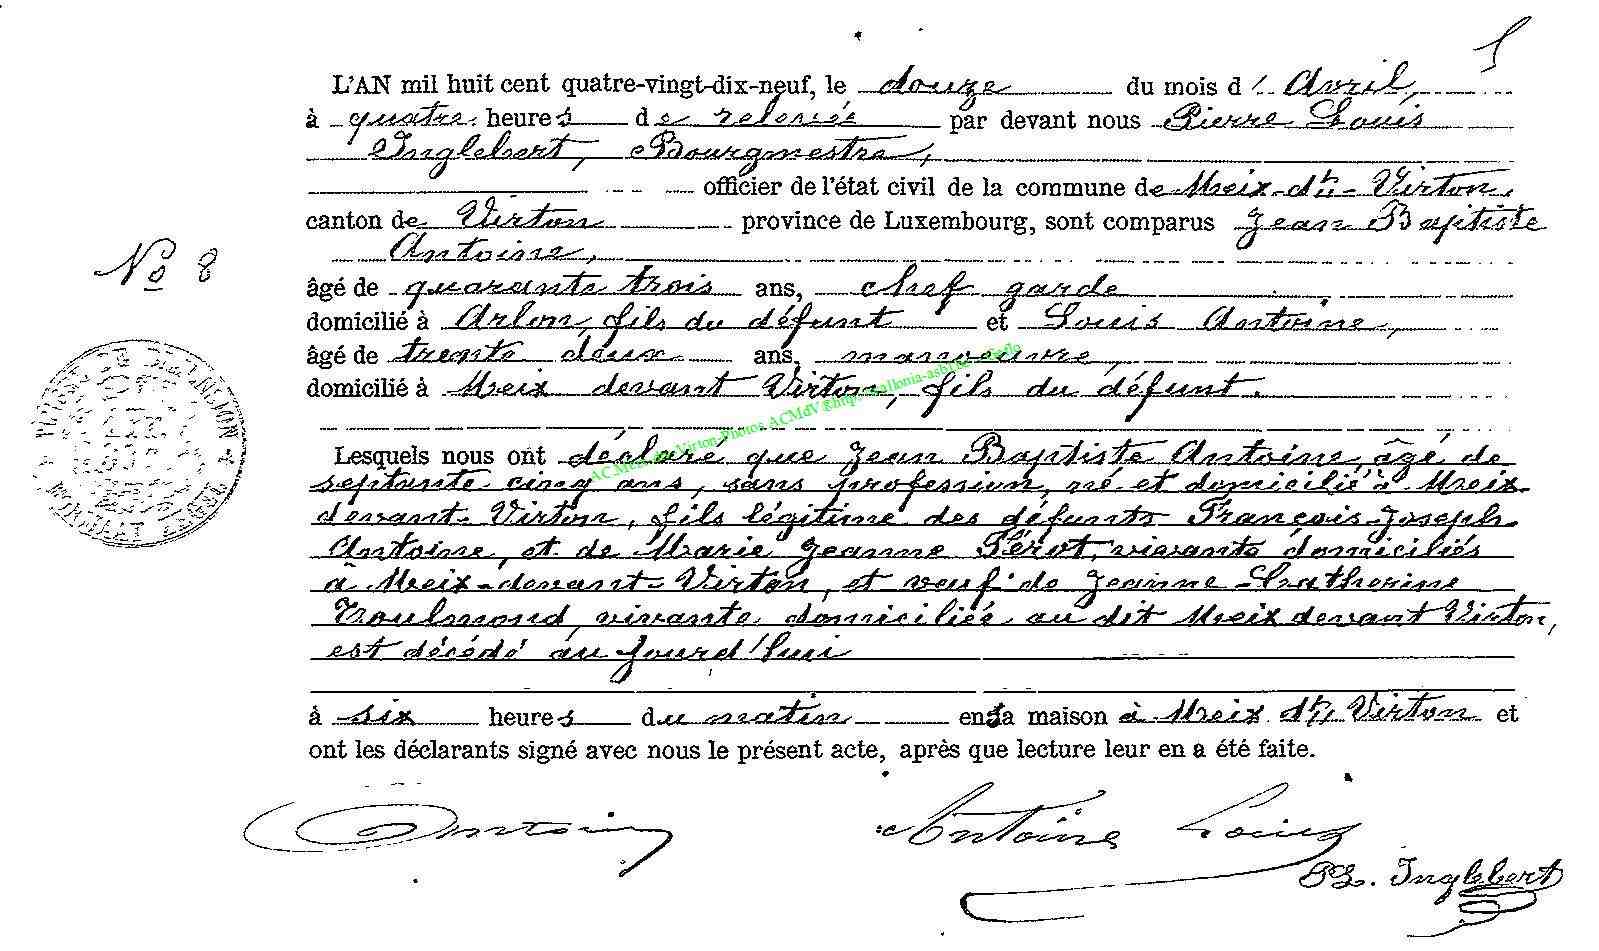 L'AN mil huit cent quatre-vingt-dix-neuf, le douze du mois d' Avril,
à quatre heures de relevée par devant nous Pierre Louis
Inglebert, Bourgmestre,
officier de l'état civil de la commune de Meix-dt-Virton,
canton de Virton province de Luxembourg, sont comparus Jean Baptiste
Antoine,
No 8
âgé de quarante trois ans, chef garde
domicilié à Arlon, fils du défunt et Louis Antoine,
âgé de trente deux ans, manoeuvre,
domicilié à Meix devant Virton, fils du défunt.
Lesquels nous ont déclaré que Jean Baptiste Antoine, âgé de
septante cinq ans, sans profession, né et domicilié à Meix-
devant-Virton, fils légitime des défunts François-Joseph
Antoine, et de Marie Jeanne Pérot, vivants domiciliés
à Meix-devant-Virton, et veuf de Jeanne-Catherine
Toulmond, vivante domiciliée au dit Meix devant Virton,
est décédé au jourd'hui
à six heures du matin en sa maison à Meix dt Virton et
ont les déclarants signé avec nous le présent acte, après que lecture leur en a été faite.
Antoine Antoine Louis
PL. Inglebert